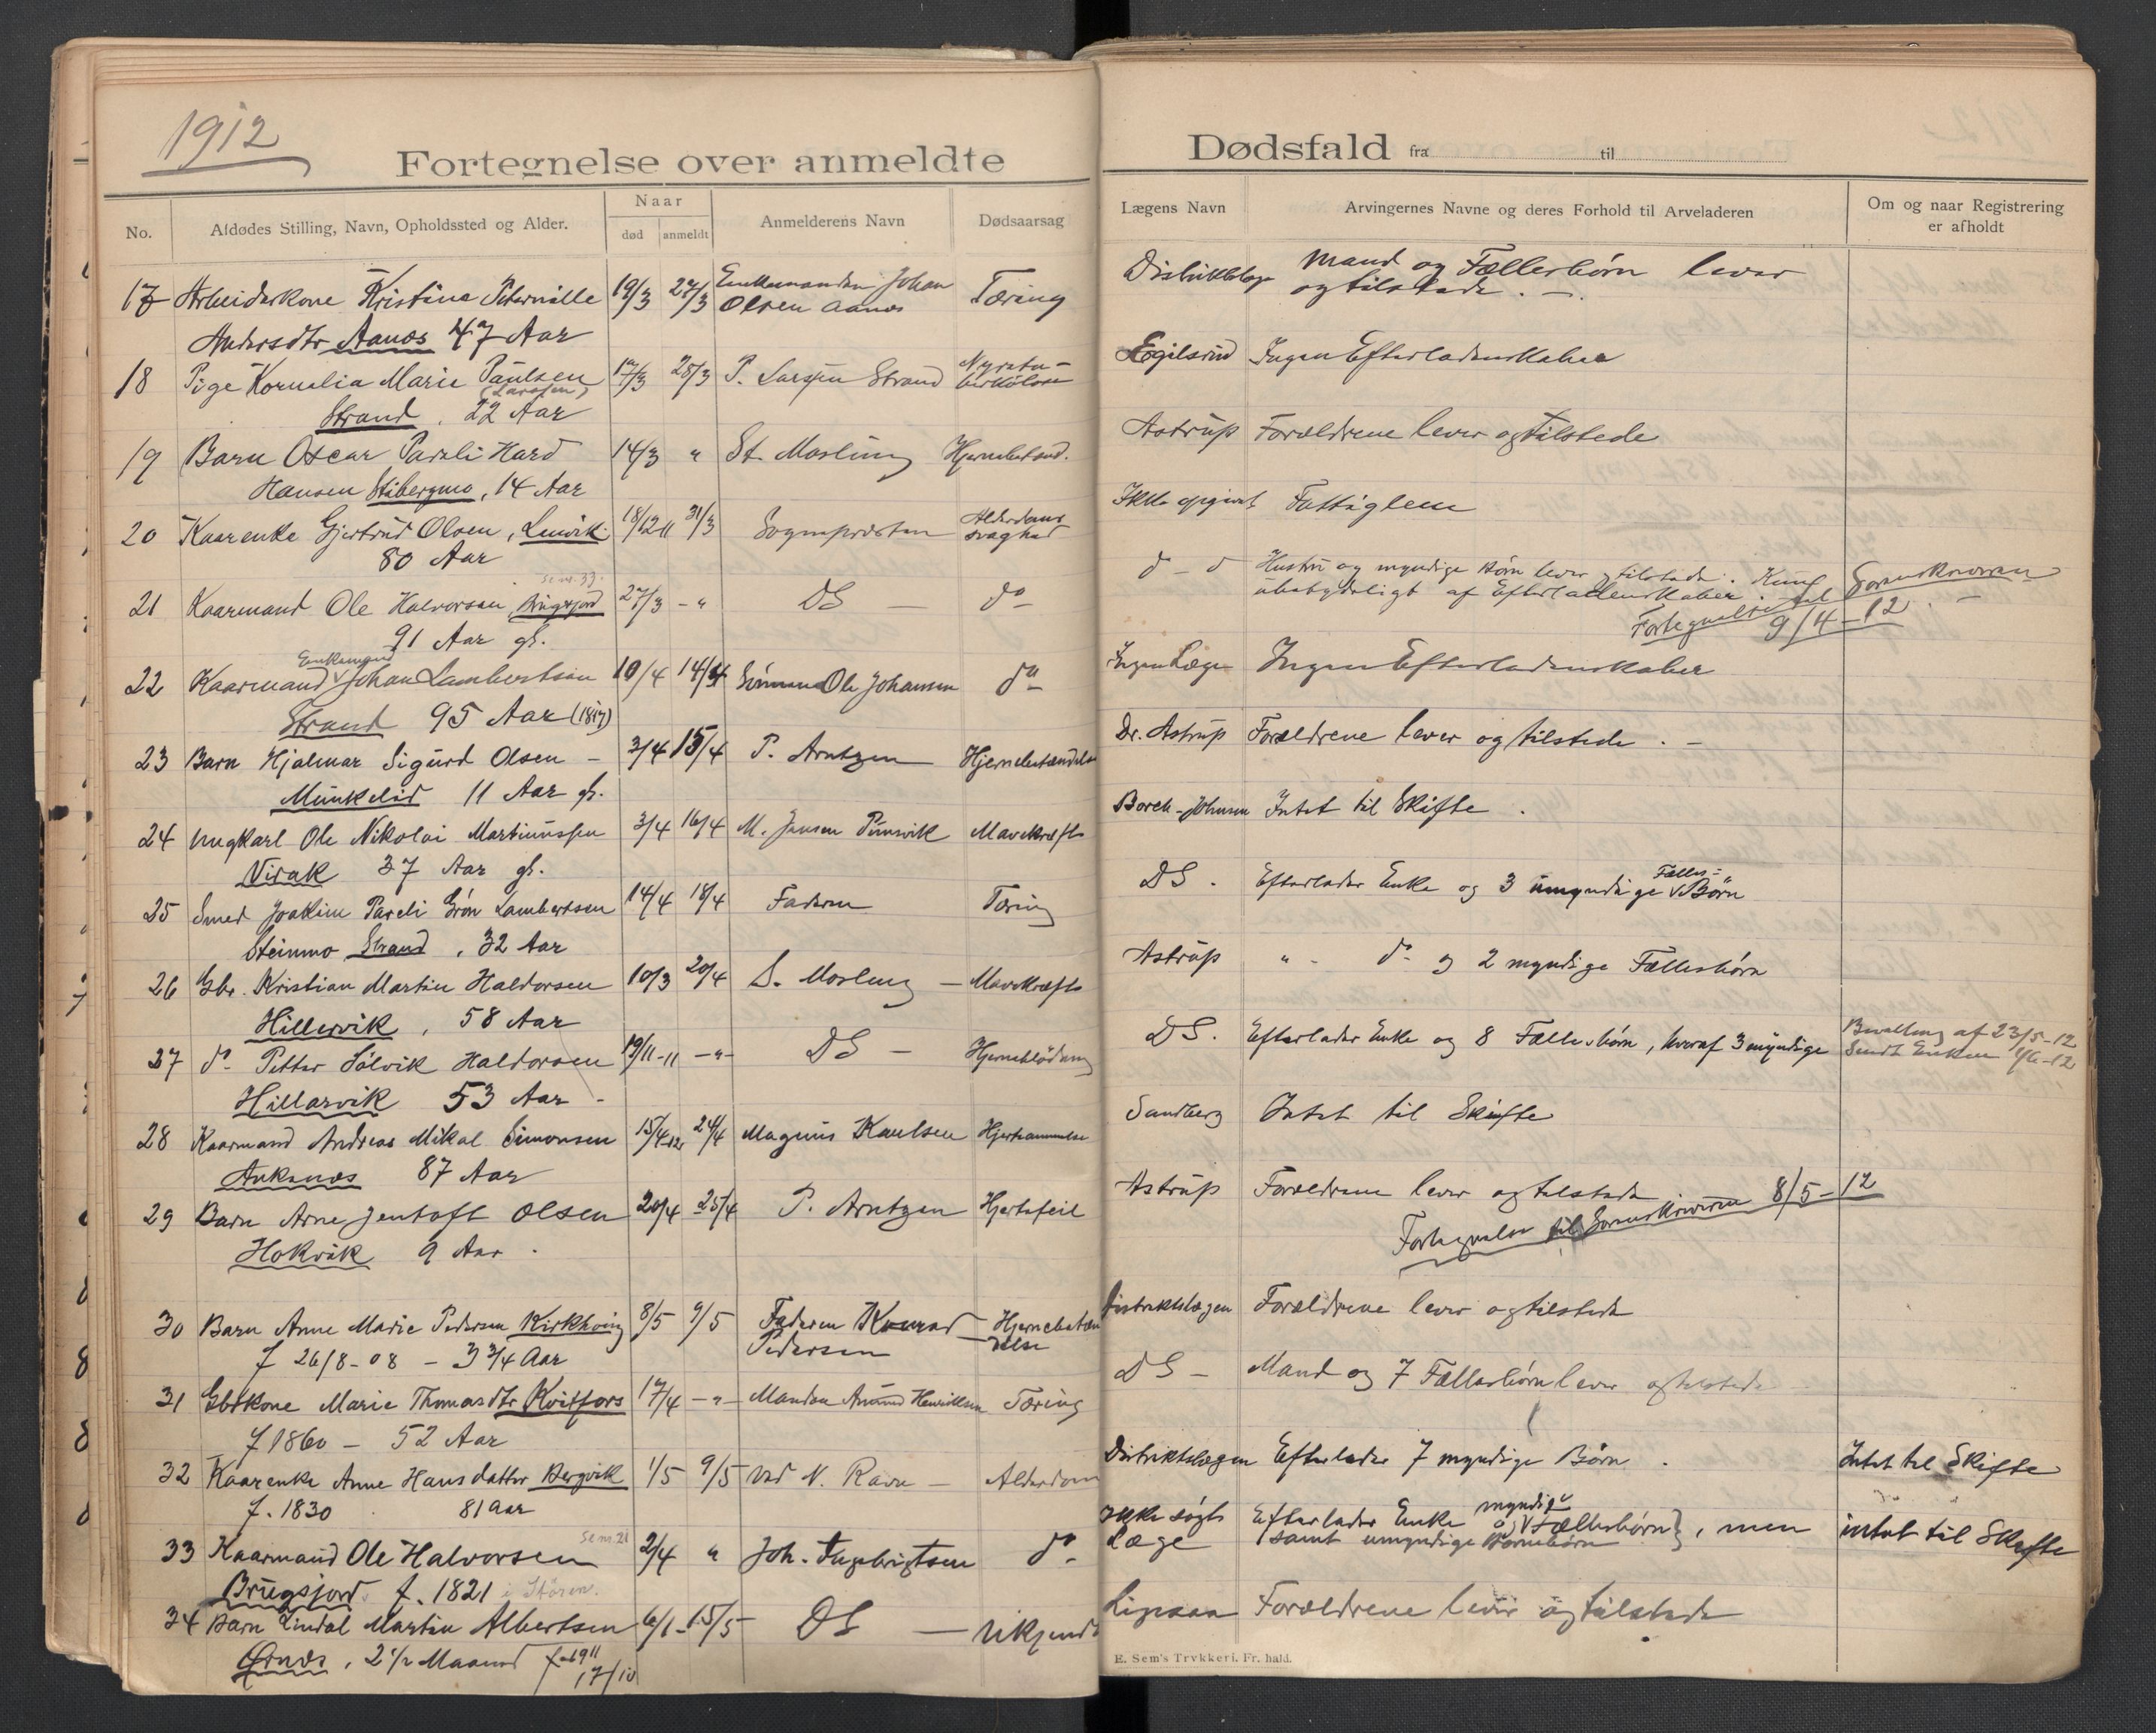 1912
Fortegnelse over anmeldte
No.
Afdødes Stilling, Navn, Opholdssted og Alder.
Naar
død
anmeldt
Anmelderens Navn
Dødsaarsag
17 Arbeiderkone Kristine Peternille 19/3 27/3 Enkemanden Johan Tæring
Andersdtr Aanæs 47 Aar Olsen Aanæs
18 Pige Kornelia Marie Paulsen 17/3 28/3 P. Larssen Strand
(Larssen)
Strand . 22 Aar
19 Barn Oscar Pareli Hard 14/3 " St. Mosling Hjernebetænd.
Hansen Stibergmo, 14 Aar
20 Kaarenke Gjertrud Olsen, Lenvik 18/12 11 31/3 Sognepræsten Alderdoms
80 Aar svaghed
21 Kaarmand Ole Halvorsen 27/3 - " DS do
se nr. 33.
91 Aar gl.
Enkemand
22 Kaarmand Johan Lambertsen 10/4 14/4 Sønnen Ole Johansen do
Strand 95 Aar (1817)
23 Barn Hjalmar Sigurd Olsen - 3/4 15/4 P. Arntzen Hjernebetændelse
Munkelid 11 Aar gl.
24 Ungkarl Ole Nikolai Martinussen 3/4 16/4 M. Jensen Mavekræft
Virak 37 Aar gl.
25 Smed Joakim Pareli Grön Lambertsen 14/4 18/4 Faderen Tæring
Steinmo Strand , 32 Aar
26 Gbr. Kristian Martin Haldorsen 10/3 20/4 S. Mosling - Mavekræft
Hillervik , 58 Aar
27 do Petter Sölvik Haldorsen 19/11-11 -"- DS - Hjerneblödning
Hillarvik 53 Aar -
28 Kaarmand Andreas Mikal Simonsen 15/4 12 24/4 Magnus Paulsen
Anksnes 87 Aar
29 Barn Arne Jentoft Olsen 20/4 25/4 P. Arntzen Hjertefeil
Hokvik 9 Aar .
30 Barn Anne Marie Pedersen Kirkhaug 8/5 9/5 Faderen Konrad Hjernebetæn
f 26/8-08 - 3 3/4 Aar Pedersen delse
31 Gbkone Marie Thomasdtr Kvitfors 17/4 -"- Manden Amund Henriksen Tæring
f 1860 - 52 Aar
32 Kaarenke Anne Hansdatter Bergvik 1/5 9/5 Ved N. Ravn - Alderdom
f. 1830 81 Aar
33 Kaarmand Ole Halvorsen 2/4 " Joh. Ingebrigtsen do
se nr. 21
Brugsjord f. 1821 i Stören.
34 Barn Lindal Martin Albertsen 6/1 - 15/5 DS - Ukjendt
Ørnes, 2 1/2 Maaned f 1911
17/10
Dødsfald fra til
Lægens Navn
Arvingernes Navne og deres Forhold til Arveladeren
Om og naar Registrering
er afholdt
Distriktslæge Mand og Fællesbörn lever
og tilstede . -
Egilsrud Ingen Efterladenskaber
Astrup Forældrene lever og tilstede
Ikke opgivet Fattiglem
d - o Hustru og myndige Börn lever og tilstede. Kun
ubetydeligt af Efterladenskaber.
Fortegnelse til Sorenskriveren
9/4-12
Ingen Læge Ingen Efterladenskaber
Dr. Astrup Forældrene lever og tilstede . -
Borch-Johnsen Intet til Skifte .
DS. Efterlader Enke og 3 umyndige Fælles= Börn
Astrup " - do og 2 myndige Fællesbörn
DS. Efterlader Enke og 8 Fællesbörn, hvoraf 3 myndige Bevilling af 23/5-12
Sendt Enken 1/6-12
Sandberg Intet til Skifte
Astrup Forældrene lever og tilstede
Fortegnelse til Sorenskriveren 8/5-12
Distriktslægen Forældrene lever og tilstede
DS - Mand og 7 Fællesbörn lever og tilstede
Distriktslægen Efterlader 7 myndige Börn . Intet til Skifte
Ikke sögt Efterlader Enke og myndige Fællesbörn , men intet til Skifte
Læge samt umyndige Börnebörn
Ligaaen Forældrene lever og tilstede
E. Sem's Trykkeri. Fr. hald.